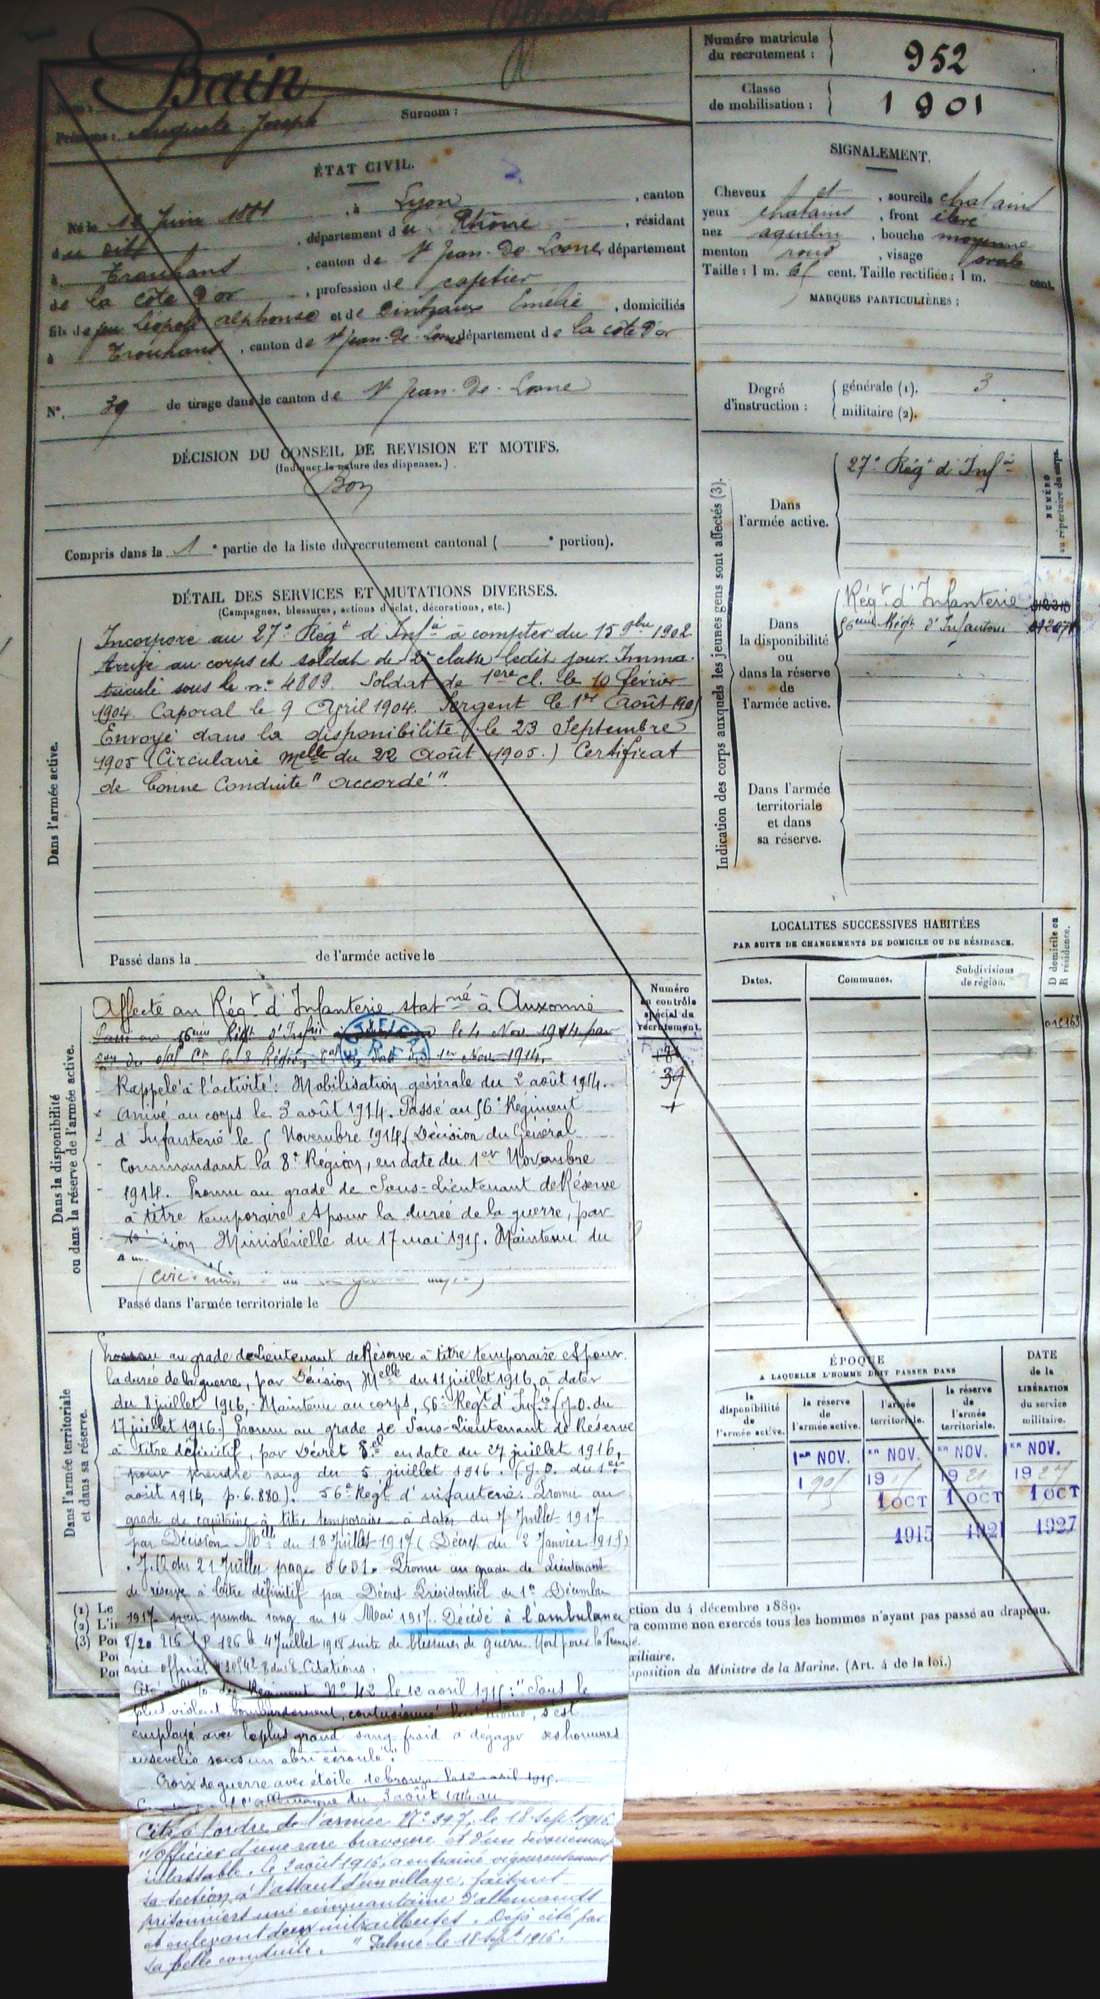 Bain
Numéro matricule du recrutement : 952
Classe de mobilisation : 1901
Prénoms : Auguste Joseph Surnom :
ÉTAT CIVIL.
Né le 12 Juin 1881, à Lyon, canton
du dit, département du Rhône, résidant
à Trouhans, canton de St Jean-De-Losne, département
de la côte D'or, profession de
fils de feu Léopold Alphonse et de Emélie, domiciliés
à Trouhans, canton de St Jean-De-Losne département de la côte D'or
N° 39 de tirage dans le canton de St Jean-De-Losne
SIGNALEMENT.
Cheveux et, sourcils chatains
yeux chatains, front
nez aquilin, bouche moyenne
menton rond, visage ovale
Taille : 1 m. 65 cent. Taille rectifiée : 1 m. cent.
MARQUES PARTICULIÈRES :
Degré d'instruction : générale (1). 3
militaire (2).
DÉCISION DU CONSEIL DE REVISION ET MOTIFS.
(Indiquer la nature des dispenses.)
Bon
Compris dans la 1e partie de la liste du recrutement cantonal ( e portion).
DÉTAIL DES SERVICES ET MUTATIONS DIVERSES.
(Campagnes, blessures, actions d'éclat, décorations, etc.)
Dans l'armée active.
Incorporé au 27e Régt d'Infie à compter du 15 9bre 1902
Arrivé au corps et soldat de 2e classe ledit jour. Imma-
triculé sous le no 4809. Soldat de 1ere cl. le 10 février
1904. Caporal le 9 Avril 1904. Sergent le 1er Août 1905
Envoyé dans la disponibilité le 23 Septembre
1905 (Circulaire Melle du 22 Août 1905.) Certificat
de bonne Conduite "accordé".
Passé dans la de l'armée active le
Indication des corps auxquels les jeunes gens sont affectés (3).
NUMÉRO au répertoire du corps.
Dans l'armée active.
27e Régt d'Infie
Dans la disponibilité ou dans la réserve de l'armée active.
Régt d'Infanterie
56eme Régt d'Infanterie
Dans l'armée territoriale et dans sa réserve.
LOCALITES SUCCESSIVES HABITÉES
PAR SUITE DE CHANGEMENTS DE DOMICILE OU DE RÉSIDENCE.
Dates. Communes. Subdivisions de région. D domicile ou R résidence.
Numéro au contrôle spécial du recrutement.
39
Dans la disponibilité ou dans la réserve de l'armée active.
Affecté au Régt d'Infanterie statné à Auxonne
Passé au 56eme Régt d'Infie le 4 Nov 1914 par
1er Nov 1914.
Rappelé à l'activité : Mobilisation générale du 2 août 1914.
Arrivé au corps le 3 août 1914. Passé au 56e Régiment
d'Infanterie le 5 Novembre 1914 (Décision du Général
Commandant la 8e Région, en date du 1er Novembre
1914. Promu au grade de Sous-Lieutenant de Réserve
à titre temporaire et pour la durée de la guerre, par
Ministérielle du 17 mai 1915. Maintenu du
Passé dans l'armée territoriale le
Dans l'armée territoriale et dans sa réserve.
Promu au grade de Lieutenant de Réserve à titre temporaire et pour
la durée de la guerre, par Décision Melle du 11 juillet 1916, à dater
du 8 juillet 1916. Maintenu au corps, 56e Régt d'Infie (J.O. du
17 juillet 1916.) Promu au grade de Sous-Lieutenant de Réserve
à titre définitif, par Décret en date du 27 juillet 1916,
pour prendre rang du 5 juillet 1916. (J.O. du 1er
août 1916, p. 6.880.). 56e Régt d'infanterie. Promu au
grade de capitaine à titre temporaire à dater du 7 Juillet 1917
par Décision Mlle du 18 Juillet 1917 (Décret du 2 Janvier 1915)
J.O. du 21 Juillet page 5651. Promu au grade de Lieutenant
de réserve à titre définitif par Décret Présidentiel du 1er Décembre
1917 pour prendre rang du 14 Mai 1917. Décédé à l'ambulance
8/20 le 4 Juillet 1918 suite de blessures de guerre. Mort pour la France.
avis officiel Citations.
Cité Régiment No 42 le 12 avril 1915 : "Sous le
plus violent bombardement, contusionné lui même, s'est
employé avec le plus grand sang froid à dégager ses hommes
ensevelis sous un abri écroulé".
Croix de guerre avec étoile de bronze le 12 avril 1915.
du 3 août 1914 au
Cité à l'ordre de l'armée No 397, le 18 Sept 1916
"Officier d'une rare bravoure et d'un dévouement
inlassable, le 2 août 1916, a entraîné vigoureusement
sa section à l'assaut d'un village, faisant
prisonniers une cinquantaine d'allemands
et enlevant deux mitrailleuses. Déjà cité pour
sa belle conduite." le 18 Sept 1916.
ÉPOQUE
A LAQUELLE L'HOMME DOIT PASSER DANS
la disponibilité de l'armée active. la réserve de l'armée active. l'armée territoriale. la réserve de l'armée territoriale.
DATE de la LIBÉRATION du service militaire.
1er NOV. 1er NOV. 1er NOV. 1er NOV.
1905 1915 1921 1927
1 OCT 1 OCT 1 OCT
1915 1921 1927
(1) Le
(2) L'in
(3) Pou
Pou
Pou
ction du 4 décembre 1889.
ra comme non exercés tous les hommes n'ayant pas passé au drapeau.
xiliaire.
sposition du Ministre de la Marine. (Art. 4 de la loi.)